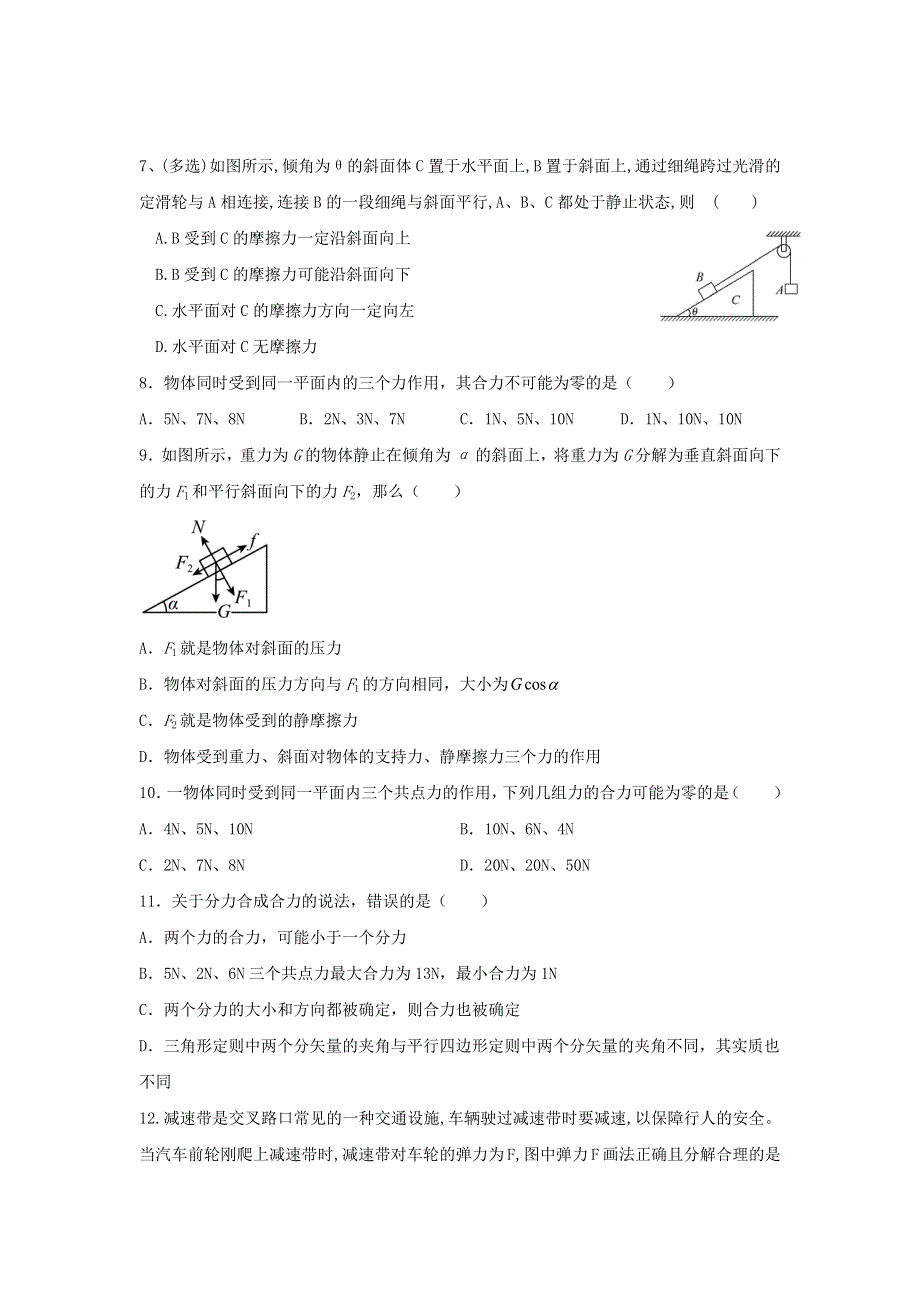 7、(多选)如图所示,倾角为θ的斜面体C置于水平面上,B置于斜面上,通过细绳跨过光滑的
定滑轮与A相连接,连接B的一段细绳与斜面平行,A、B、C都处于静止状态,则 (　　)
A.B受到C的摩擦力一定沿斜面向上
B.B受到C的摩擦力可能沿斜面向下
C.水平面对C的摩擦力方向一定向左
D.水平面对C无摩擦力
B
A
C
θ
8．物体同时受到同一平面内的三个力作用，其合力不可能为零的是（　　）
A．5N、7N、8N　　B．2N、3N、7N　　C．1N、5N、10N　　D．1N、10N、10N
9．如图所示，重力为G的物体静止在倾角为α的斜面上，将重力为G分解为垂直斜面向下
的力F₁和平行斜面向下的力F₂，那么（　　）
N
f
F₂
F₁
α
G
A．F₁就是物体对斜面的压力
B．物体对斜面的压力方向与F₁的方向相同，大小为Gcosα
C．F₂就是物体受到的静摩擦力
D．物体受到重力、斜面对物体的支持力、静摩擦力三个力的作用
10．一物体同时受到同一平面内三个共点力的作用，下列几组力的合力可能为零的是（　　）
A．4N、5N、10N　　B．10N、6N、4N
C．2N、7N、8N　　D．20N、20N、50N
11．关于分力合成合力的说法，错误的是（　　）
A．两个力的合力，可能小于一个分力
B．5N、2N、6N三个共点力最大合力为13N，最小合力为1N
C．两个分力的大小和方向都被确定，则合力也被确定
D．三角形定则中两个分矢量的夹角与平行四边形定则中两个分矢量的夹角不同，其实质也
不同
12.减速带是交叉路口常见的一种交通设施,车辆驶过减速带时要减速,以保障行人的安全。
当汽车前轮刚爬上减速带时,减速带对车轮的弹力为F,图中弹力F画法正确且分解合理的是